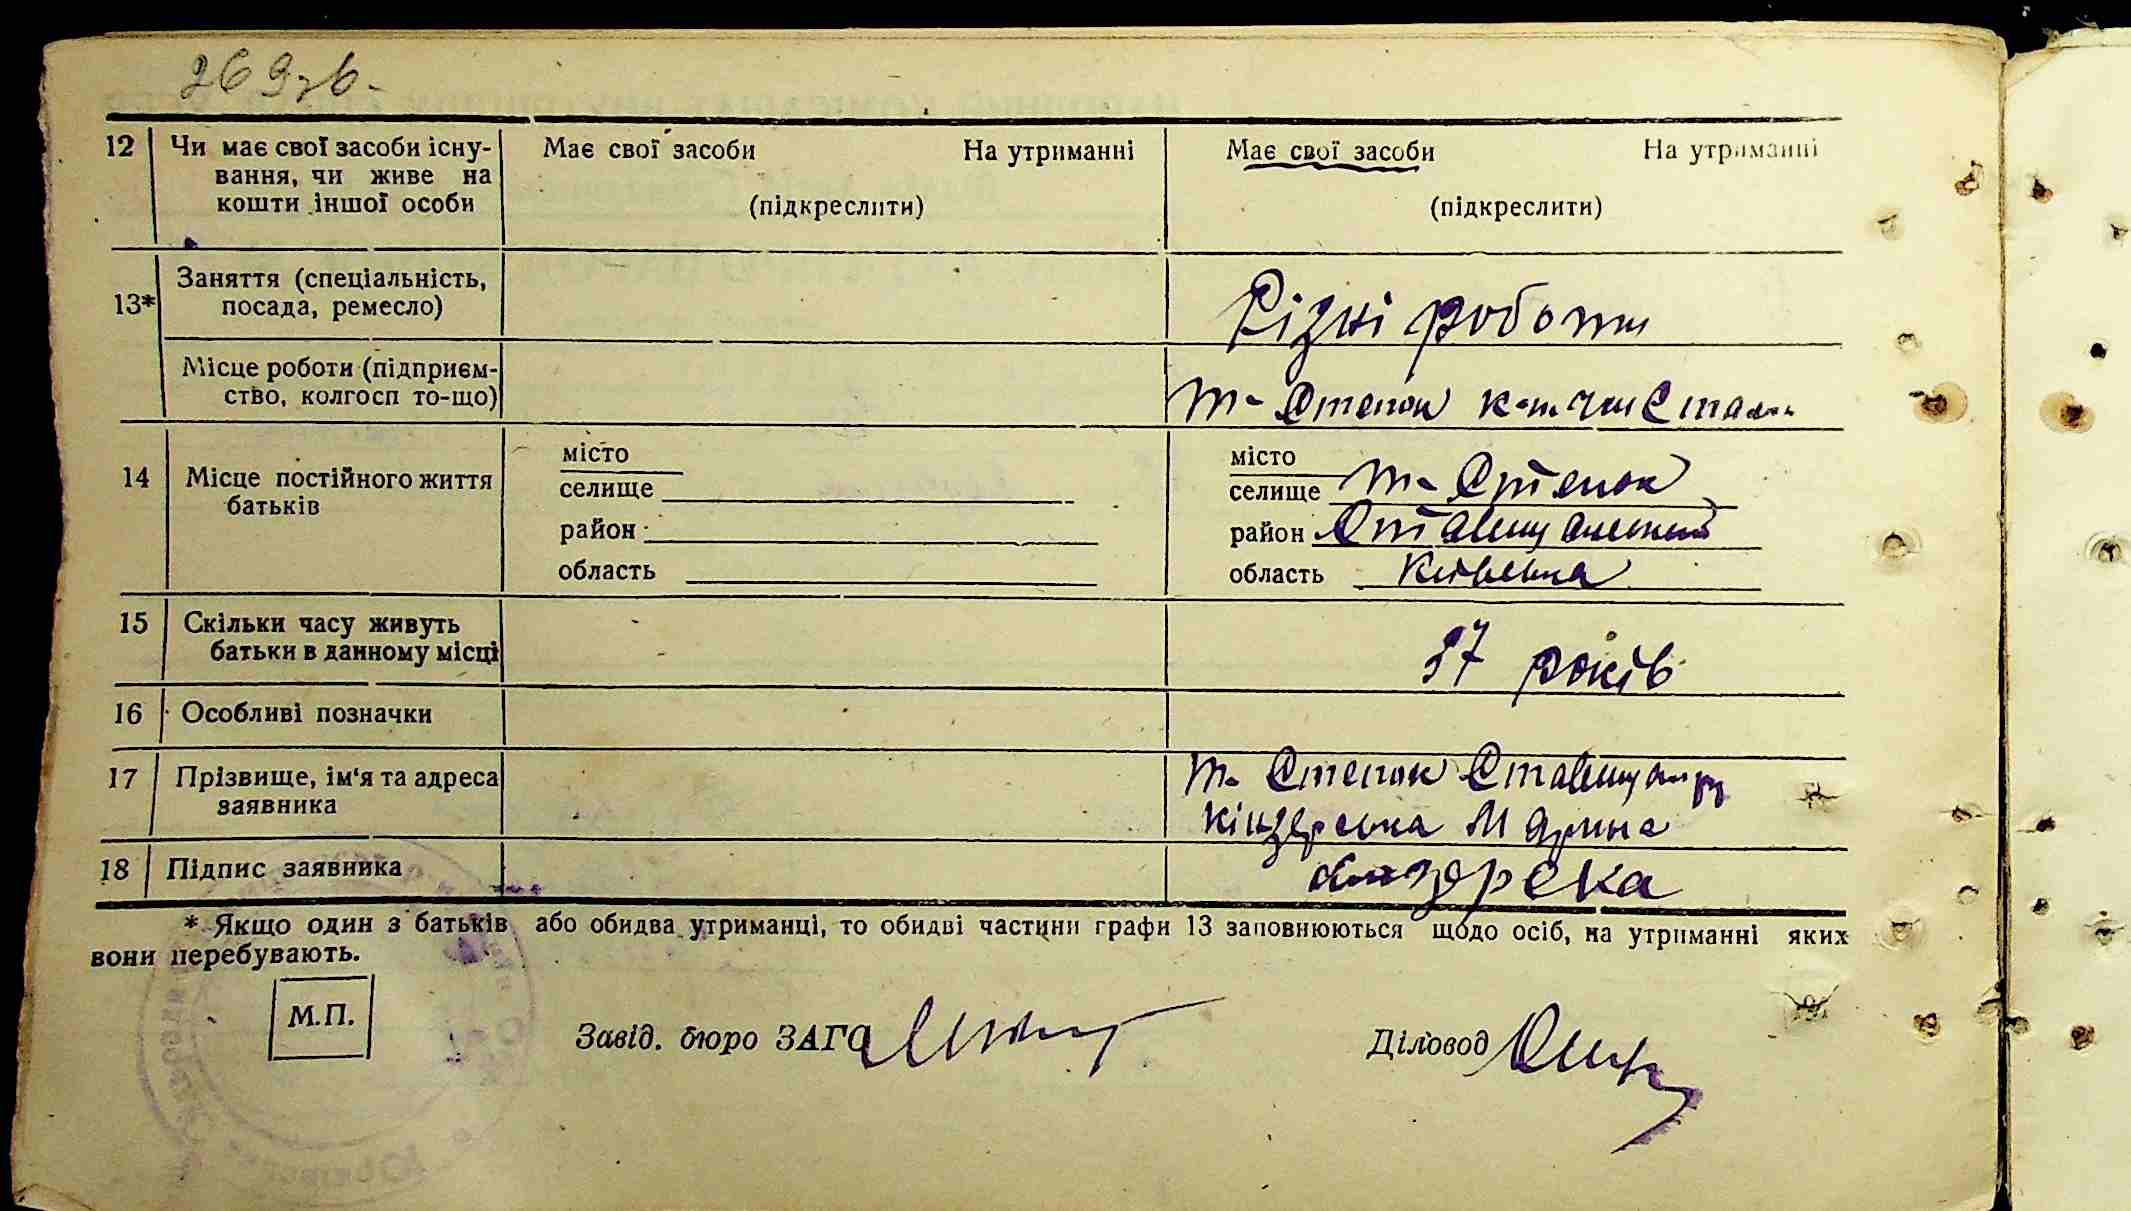 269зв.
12 Чи має свої засоби існу-
вання, чи живе на
кошти іншої особи
Має свої засоби На утриманні
(підкреслити)
Має свої засоби На утриманні
(підкреслити)
13* Заняття (спеціальність,
посада, ремесло)
Різні роботи
Місце роботи (підприєм-
ство, колгосп то-що)
м-
14 Місце постійного життя
батьків
місто
селище
район
область
місто
селище м-
район
область Київська
15 Скільки часу живуть
батьки в данному місці
37 років
16 Особливі позначки
17 Прізвище, ім'я та адреса
заявника
м-
Кіндзерська Марина
18 Підпис заявника
* Якщо один з батьків або обидва утриманці, то обидві частини графи 13 заповнюються щодо осіб, на утриманні яких
вони перебувають.
М.П.
Завід. бюро ЗАГС
Діловод